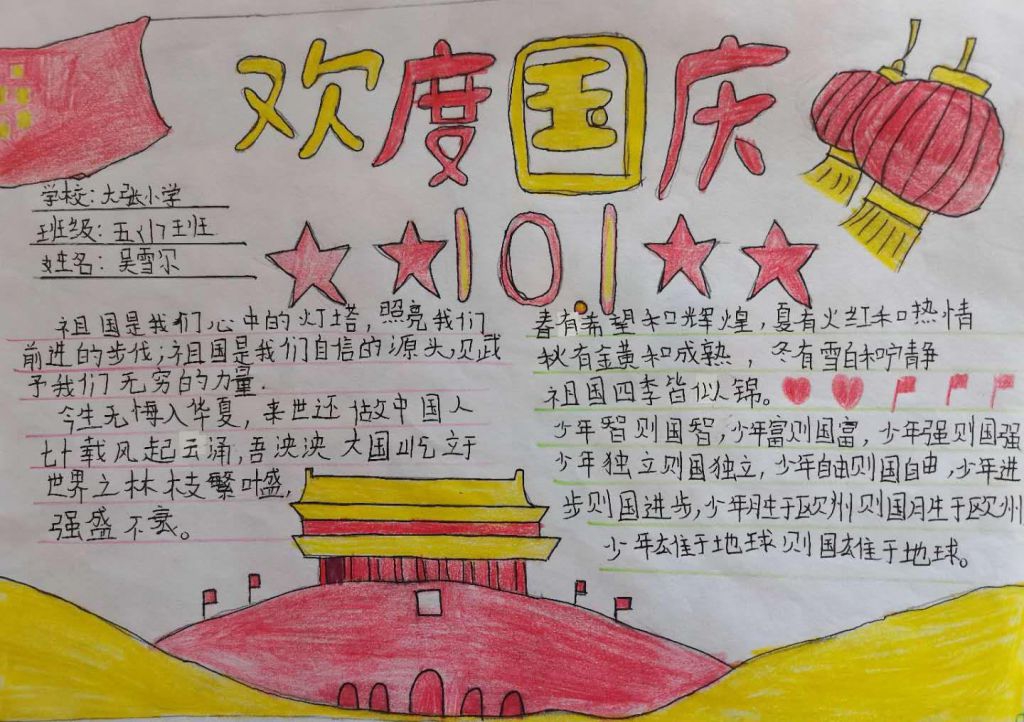 欢度国庆
10.1
学校:大张小学
班级:五(1)班
姓名:吴雪尔
祖国是我们心中的灯塔,照亮我们
前进的步伐;祖国是我们自信的源头,贝武
予我们无穷的力量.
今生无悔入华夏,来世还做中国人
七十载风起云涌,吾泱泱大国屹立于
世界之林枝繁叶盛,
强盛不衰。
春有希望和辉煌,夏有火红和热情
秋有金黄和成熟,冬有雪白和宁静
祖国四季皆似锦。
少年智则国智,少年富则国富,少年强则国强
少年独立则国独立,少年自由则国自由,少年进
步则国进步,少年胜于欧州则国胜于欧州
少年雄于地球则国雄于地球。